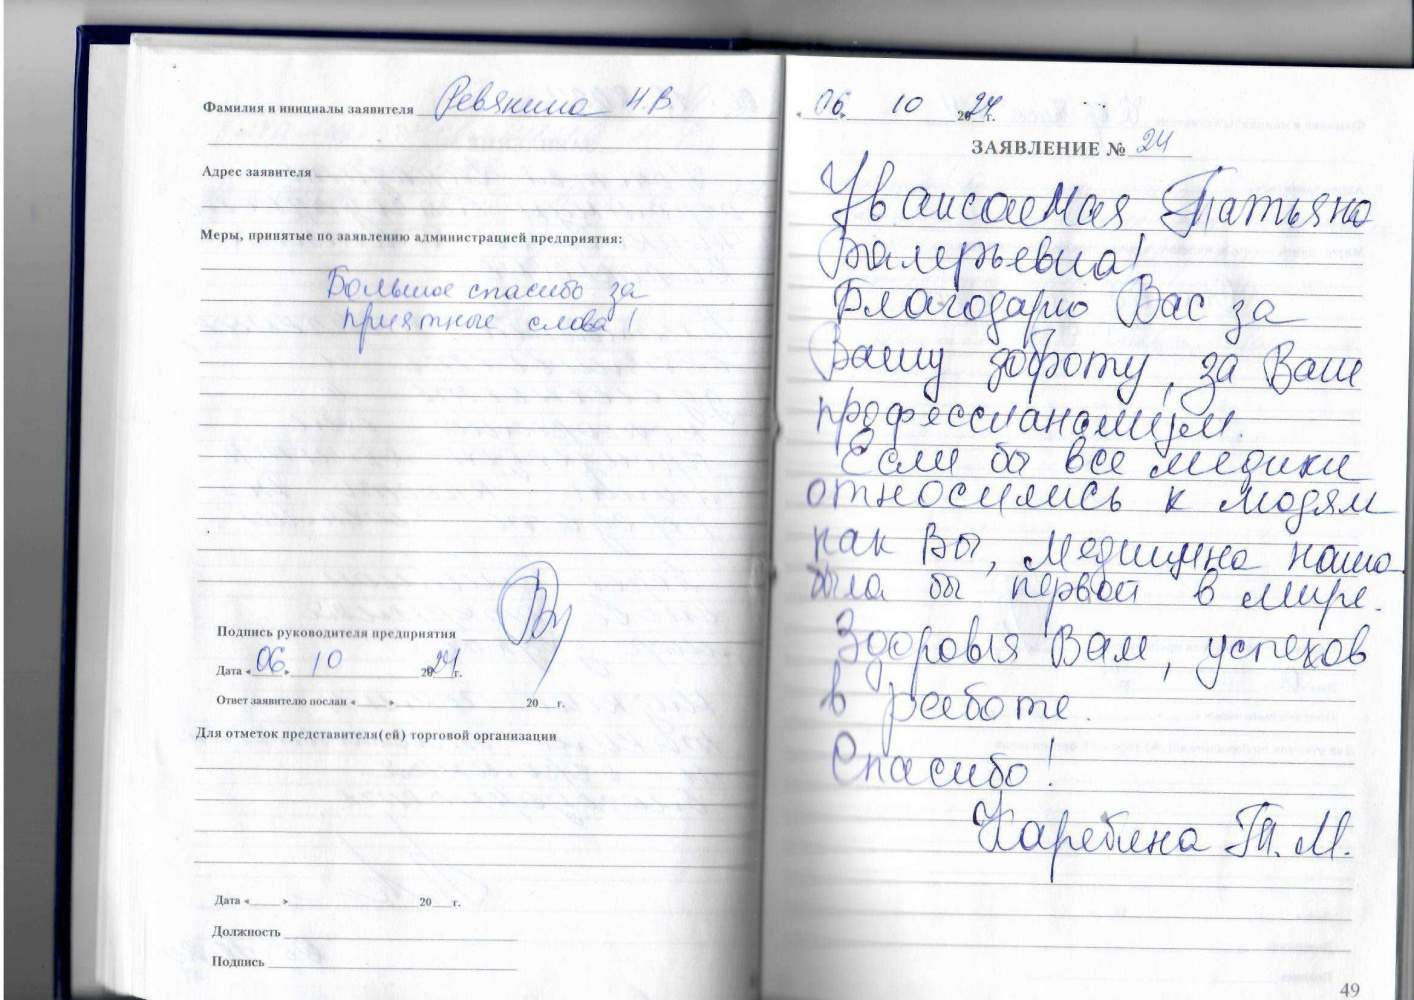 Фамилия и инициалы заявителя Ревякина Н.В.
Адрес заявителя
Меры, принятые по заявлению администрацией предприятия:
Большое спасибо за
приятные слова!
Подпись руководителя предприятия
Дата «06» 10 2024г.
Ответ заявителю послан « » 20 г.
Для отметок представителя(ей) торговой организации
Дата « » 20 г.
Должность
Подпись
«06» 10 2024г.
ЗАЯВЛЕНИЕ № 24
Уважаемая Татьяна
Валерьевна!
Благодарю Вас за
Вашу доброту, за Ваш
профессианализм.
Если бы все медики
относились к людям
как Вы, медицина наша
была бы первой в мире.
Здоровья Вам, успехов
в работе.
Спасибо!
Т.М.
49